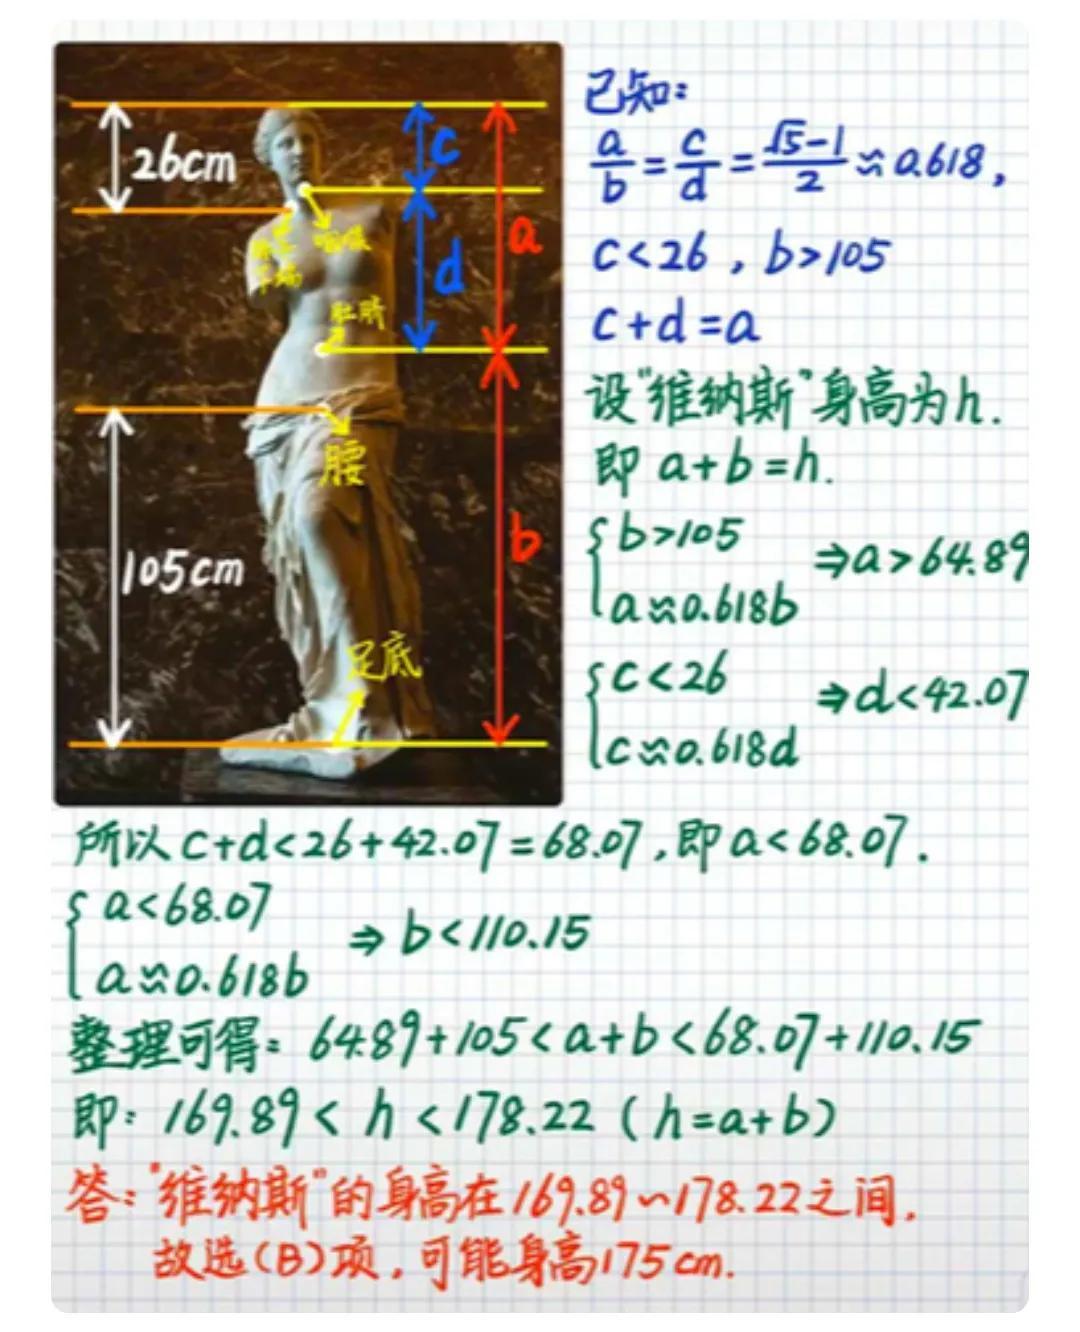 26cm
c
a
d
咽喉
肚脐
腰
105cm
b
足底
已知:
a/b = c/d = (√5-1)/2 ≈ 0.618,
c<26, b>105
c+d=a
设“维纳斯”身高为h.
即 a+b=h.
{ b>105
a≈0.618b ⇒a>64.89
{ c<26
c≈0.618d ⇒d<42.07
所以c+d<26+42.07=68.07,即a<68.07.
{ a<68.07
a≈0.618b ⇒b<110.15
整理可得: 64.89+105<a+b<68.07+110.15
即: 169.89<h<178.22 (h=a+b)
答:“维纳斯”的身高在169.89~178.22之间,
故选(B)项,可能身高175cm.